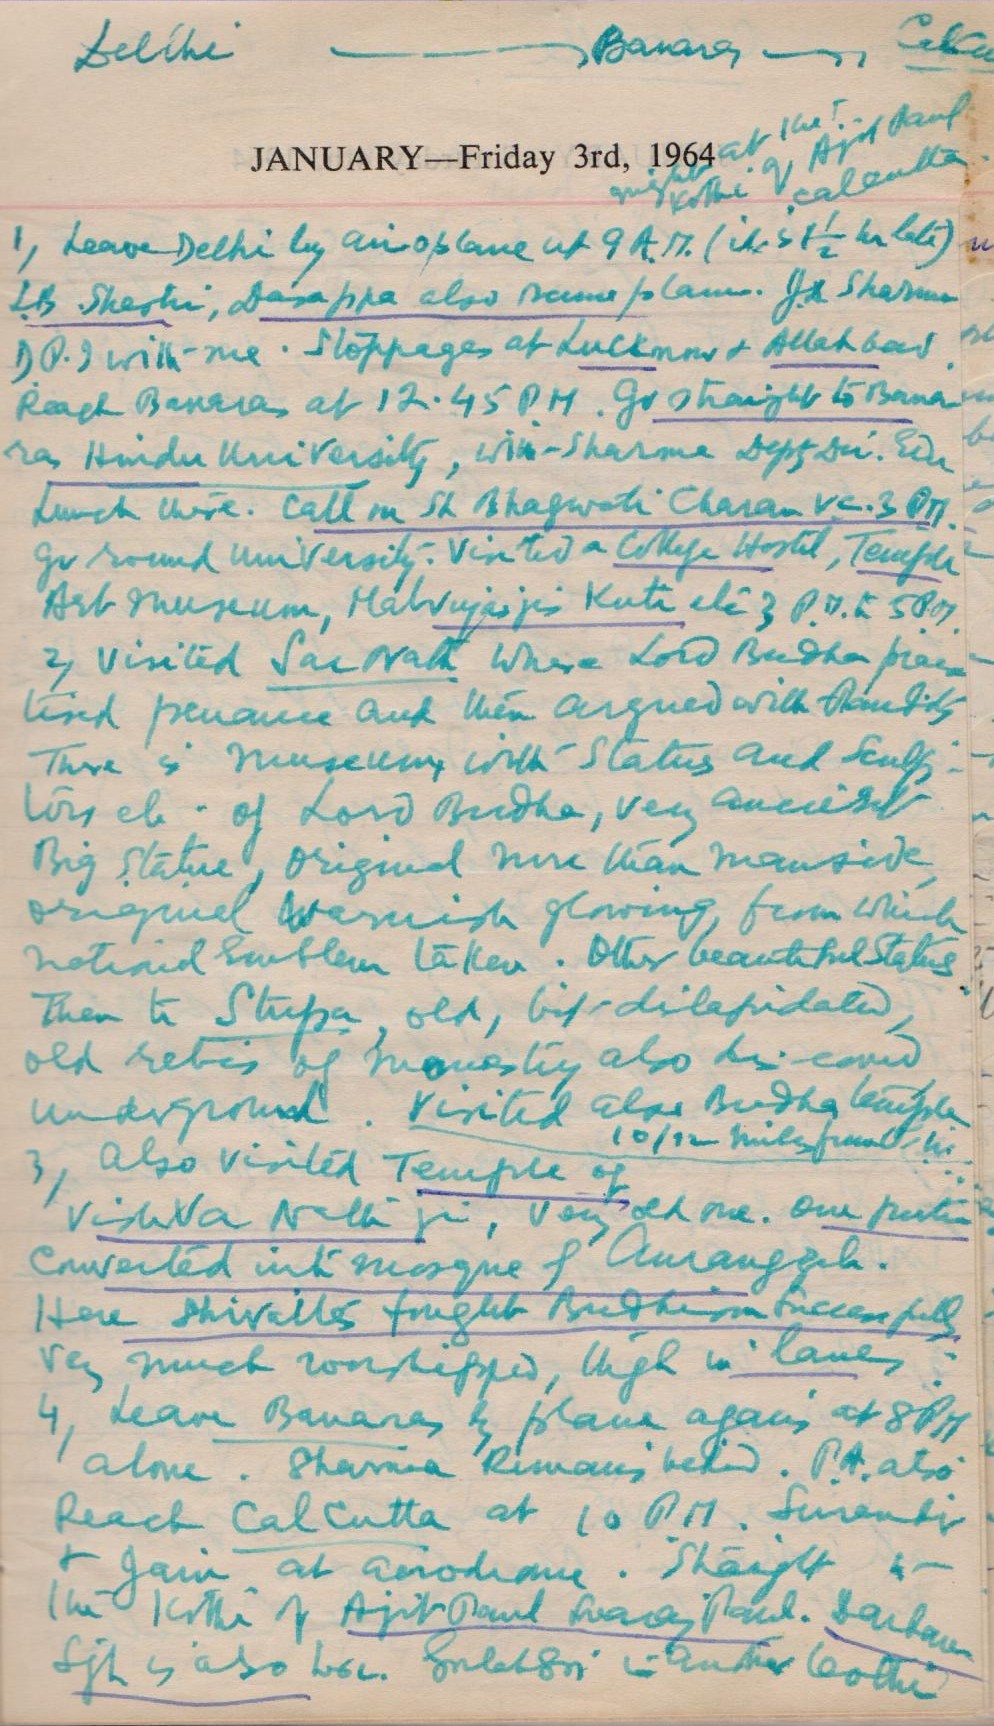 Delhi — Banaras — Calcu
night at the
Kothi of Ajit Paul
Calcutta
JANUARY—Friday 3rd, 1964
1, Leave Delhi by airoplane at 9 A.M. (it is 1½ hr late)
L.B. Shastri, Dasappa also same plane. Sharma
D.P.I with me. Stoppages at Lucknow & Allahbad.
Reach Banaras at 12.45 P.M. Go straight to Bana
ras Hindu University, with Sharma Dept Dir. Edu
Lunch there. Call on Sh Bhagwati Charan V.C. 3 P.M.
go round University. Visited a College Hostel, Temple
Art Museum, Malvyajis Kuti etc 3 P.M. to 5 P.M.
2, Visited Sar Nath where Lord Budha prac
tised penance and then argued with Pandits
There is museum with Status and Sculp-
tors etc. of Lord Budha, very ancient
Big Statue, original more than manside,
original Warnish glowing, from which
national Emblem taken. Other beautiful Status
Then to Stupa, old, big dilapidated,
old relics of Monastry also dis-coverd
underground. Visited also Budha temple
10/12 miles from
3, Also visited Temple of
VishVa Nath ji, Very old one. One portion
Converted into mosque by Aurangzeb.
Here Shivaites fought Budhism Successfully
Very much worshipped, though in lanes
4, Leave Banaras by plane again at 8 PM
alone. Sharma Remains behind. P.A. also
Reach Calcutta at 10 P.M. Surendr
& Jain at aerodrome. Straight to
the Kothi of Ajit Paul Swaraj Paul. Darbara
Sgh is also here. in another Kothi